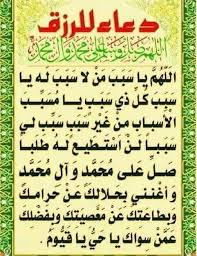 دعاء للرزق
اللهم صل على محمد وآل محمد
اللَّهُمَّ يا سَبَبَ مَنْ لا سَبَبَ لَه يا
سَبَبَ كُلِّ ذي سَبَبٍ يا مُسَبِّبَ
الأَسبابِ مِنْ غَيرِ سَبَبٍ سَبِّبْ لي
سَبَباً لَنْ أَستَطيعَ لَهُ طَلَبا
صَلِّ عَلى مُحَمَّد وَ آلِ مُحَمَّد
وَ أغنِني بِحَلالِكَ عَنْ حَرامِكَ
وَبِطاعَتِكَ عَنْ مَعْصِيَتِكَ وَبِفَضْلِكَ
عَمَّنْ سِواكَ يا حَيُّ يا قَيُّومُ .